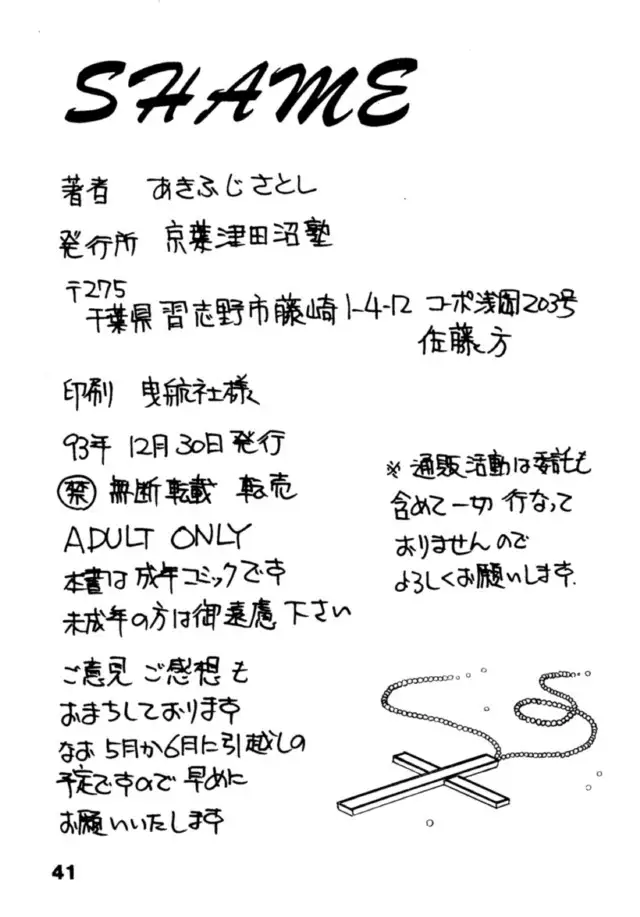 SHAME
著者 あきふじさとし
発行所 京葉津田沼塾
〒275
千葉県習志野市藤崎1-4-12 コーポ浅岡203号
佐藤方
印刷 曳航社様
93年 12月30日発行
禁 無断転載 転売
ADULT ONLY
本書は成年コミックです
未成年の方は御遠慮下さい
※通販活動は委託も
含めて一切行なって
おりませんので
よろしくお願いします.
ご意見 ご感想も
おまちしております
なお 5月か6月に引越しの
予定ですので 早めに
お願いいたします
41